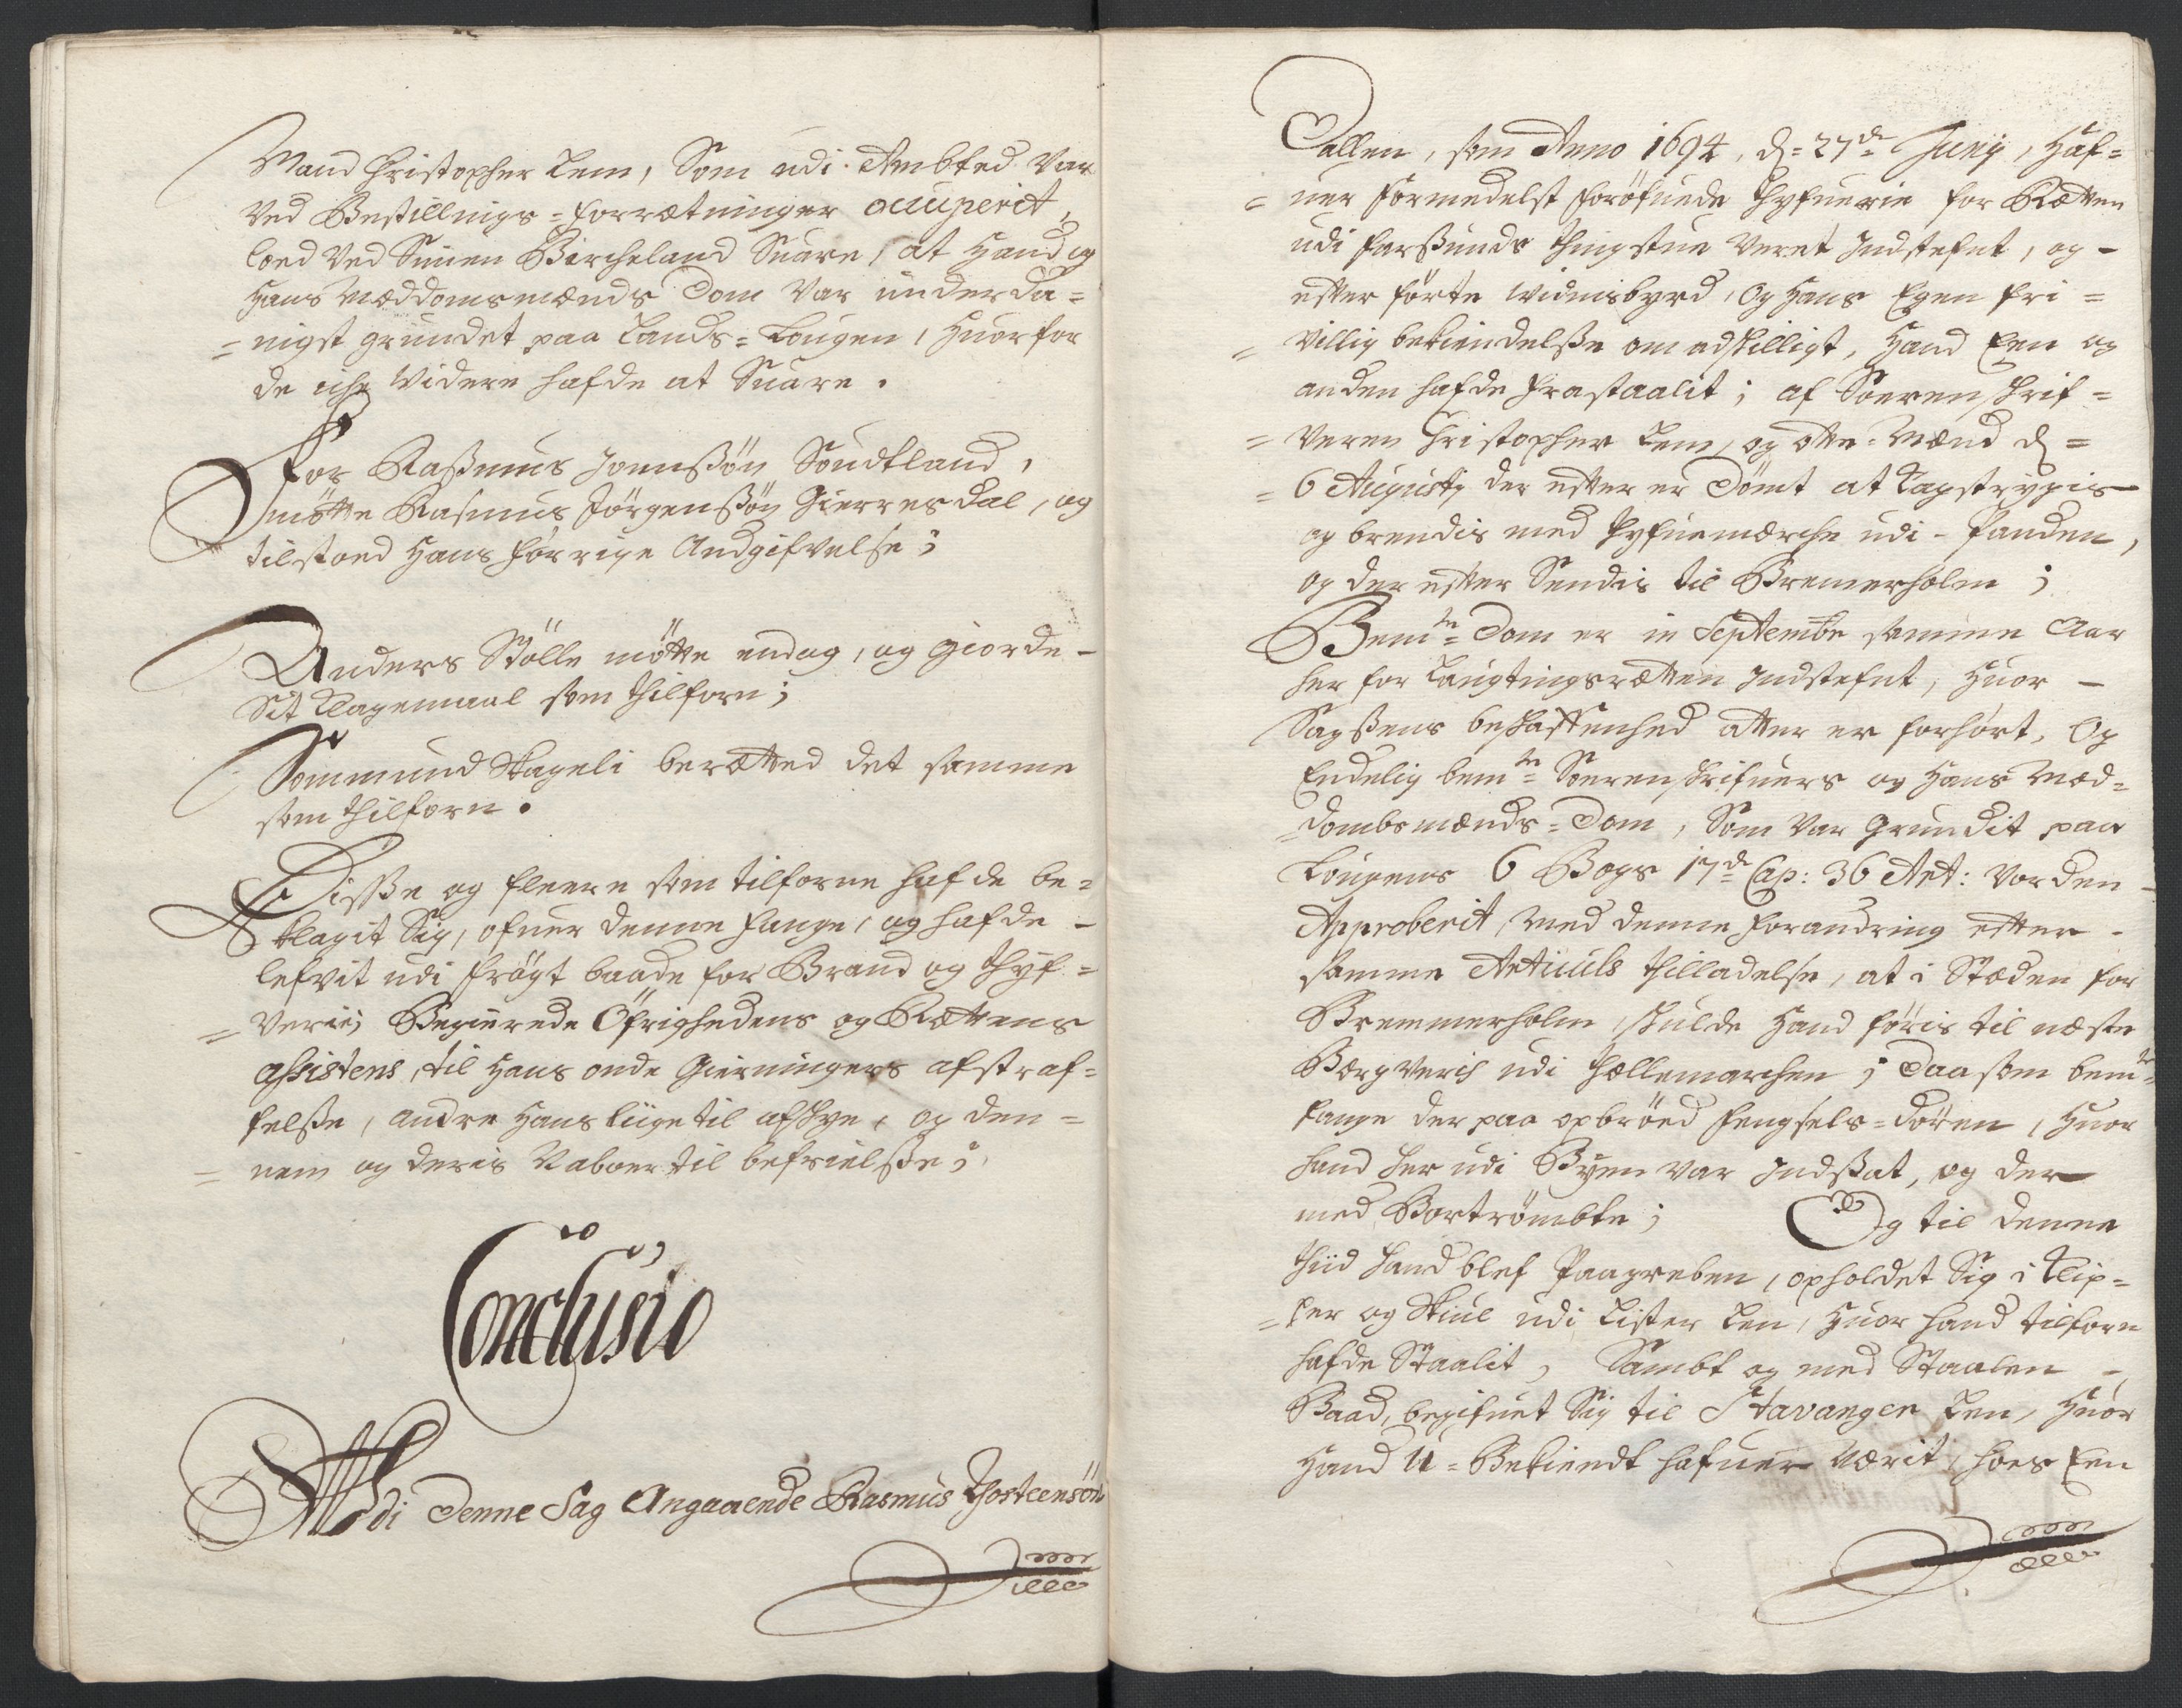 Mand Christopher Lem, Som udi Ambted var
ved Bestillnigs-forrætninger occuperit,
loed ved Simen Bircheland Svare, at Hand og
Hans Meddomsmænds Dom var underda=
=nigst grundet paa Lands-Lougen, huorfor
de iche Widere hafde at Suare.
For Rasmus Joenssøn Sundtland,
møtte Rasmus Jørgenssøn Gierresdal, og
tilstoed Hans forrige Andgifvelse;
Anders Stølle møtte endog, og giorde-
Sit Klagemaal som thilforn;
Sommund Skageli berætted det samme
som thilforn.
Disse og fleere som tilforne hafde be=
klagit Sig, ofver denne fange, og hafde-
lefvit udi frögt baade for Brand og thyf=
=verie; Begierede Öfrighedens og Rættens
assistens, til Hans onde Gierningers afstraf=
felsse, andre Hans liige til afskye, og den=
=nem og deris Naboer til befrielsse;
Conclusio
Udi Denne Sag Angaaende Rasmus Thosteensön
Dallen, som Anno 1694, d= 27de Junÿ, Haf=
=uer formedelst forøfvede thyfverie for Rætten
udi Farssunds thingstue veret Indstefnt, og-
efter førte widnisbyrd, og Hans Egen fri=
=villig bekiendelsse om adskilligt, Hand Een og
anden hafde frastaalit; af Soerenskrif=
=veren Christopher Lem, og otte-Mænd d=
=6 Augusti der efter er Dømt at Kagstrygis
og brendis med thyfvemerche udi-Panden,
og der efter Sendis til Bremerholm;
Bemte Dom er in Septembr samme Aar
her for Laugtingsrætten Indstefnt, Huor-
Sagssens beskaffenhed atter er forhørt, Og
Endelig bemte Soerenskrifvers og Hans Med=
=Dombsmænds-Dom, Som var grundit paa
Lougens 6 Bogs 17de Cap: 36 Art: vorden-
Approberit, med denne forandring efter-
samme Articuls thilladelse, at i Stæden for
Bremmerholm, skulde Hand føris til næste
Bergverch udi thellemarchen; Daa som bemte
fange der paa opbröed fengsels-Dören, Huor
hand her udi Byen var Indssat, og der
med Bortrömbte; Og til denne
thiid Hand blef Paagreben, opholdet Sig i Klip=
=per og Skiul udi Lister Len, Huor hand tilforn
hafde Staalit, Sambt og med Staalen-
Baad, begifvet Sig til Stavanger Len, Huor
Hand U=Bekiendt hafuer Værit, hoes Een